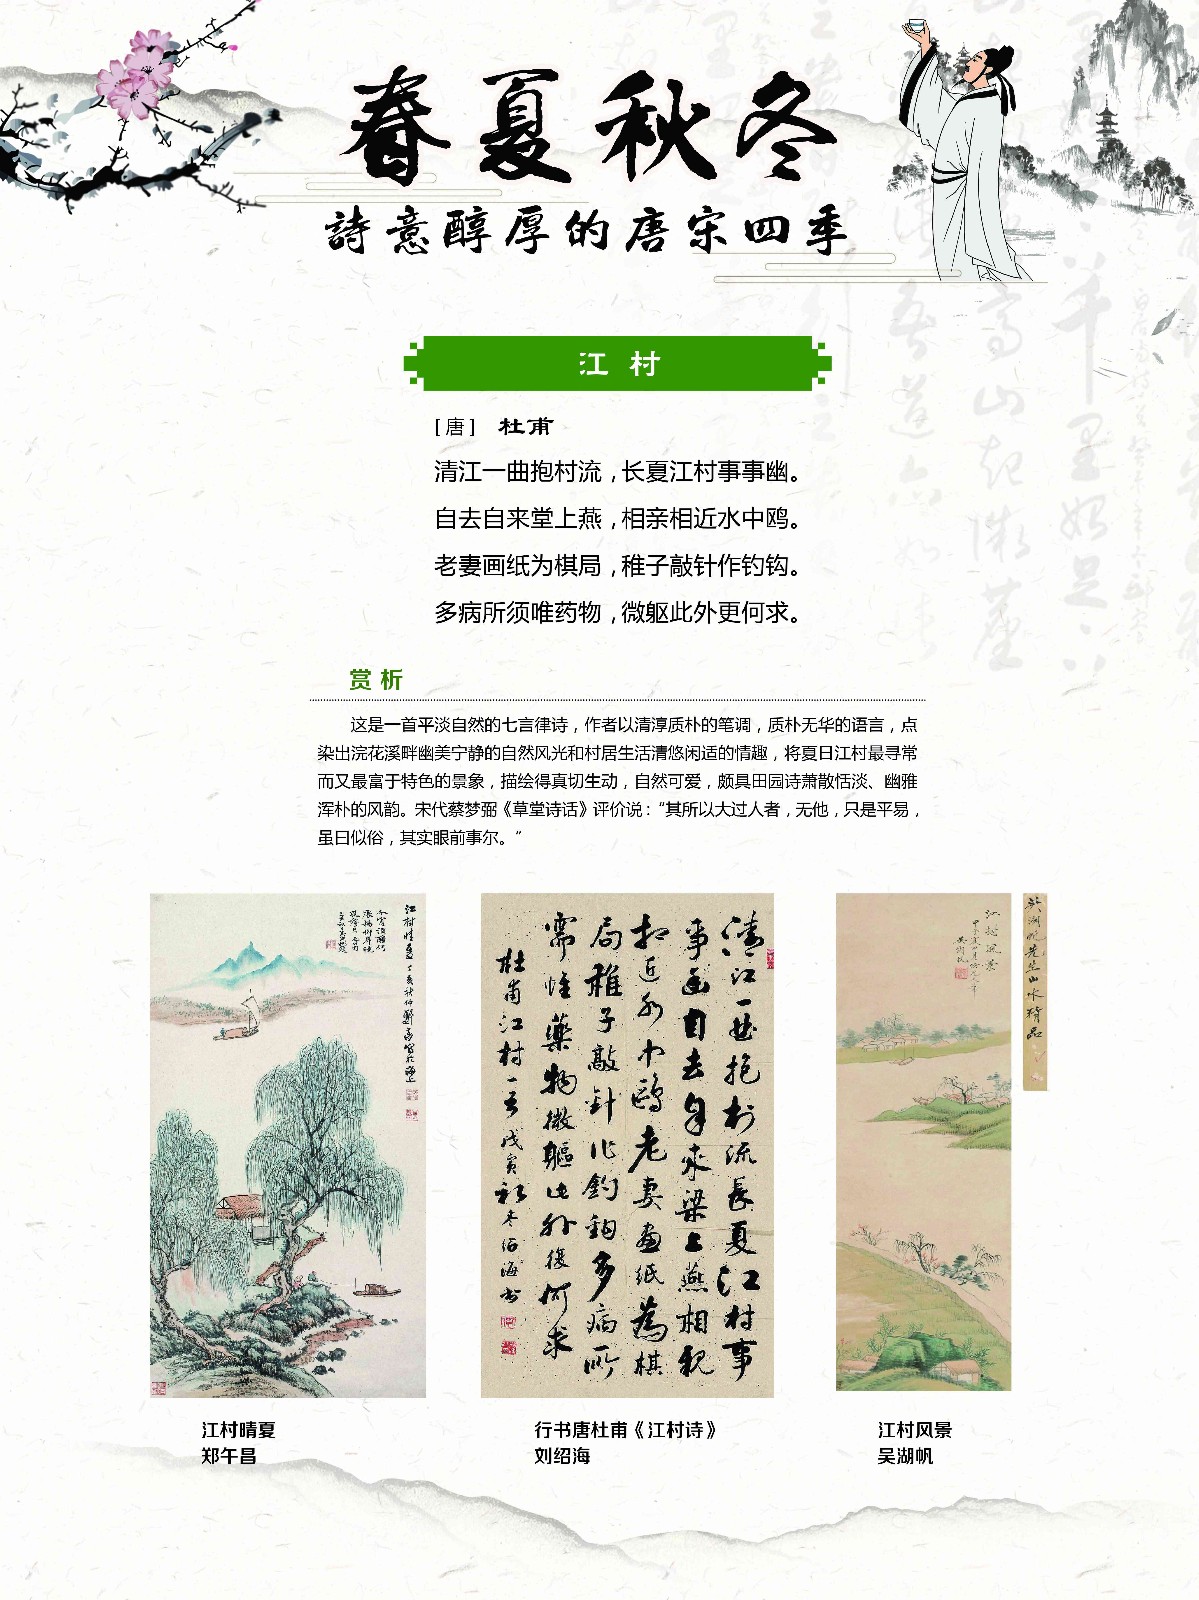 春夏秋冬
詩意醇厚的唐宋四季
江村
[唐] 杜甫
清江一曲抱村流，长夏江村事事幽。
自去自来堂上燕，相亲相近水中鸥。
老妻画纸为棋局，稚子敲针作钓钩。
多病所须唯药物，微躯此外更何求。
赏析
这是一首平淡自然的七言律诗，作者以清淳质朴的笔调，质朴无华的语言，点
染出浣花溪畔幽美宁静的自然风光和村居生活清悠闲适的情趣，将夏日江村最寻常
而又最富于特色的景象，描绘得真切生动，自然可爱，颇具田园诗萧散恬淡、幽雅
浑朴的风韵。宋代蔡梦弼《草堂诗话》评价说：“其所以大过人者，无他，只是平易，
虽曰似俗，其实眼前事尔。”
清江一曲抱村流長夏江村事
事幽自去自来梁上燕相親
相近水中鸥老妻畫紙為棋
局稚子敲針作釣鈎多病所
需惟藥物微軀此外復何求
杜甫江村一首戊寅初冬绍海书
江村風景
吴湖帆先生山水精品
江村晴夏
郑午昌
行书唐杜甫《江村诗》
刘绍海
江村风景
吴湖帆